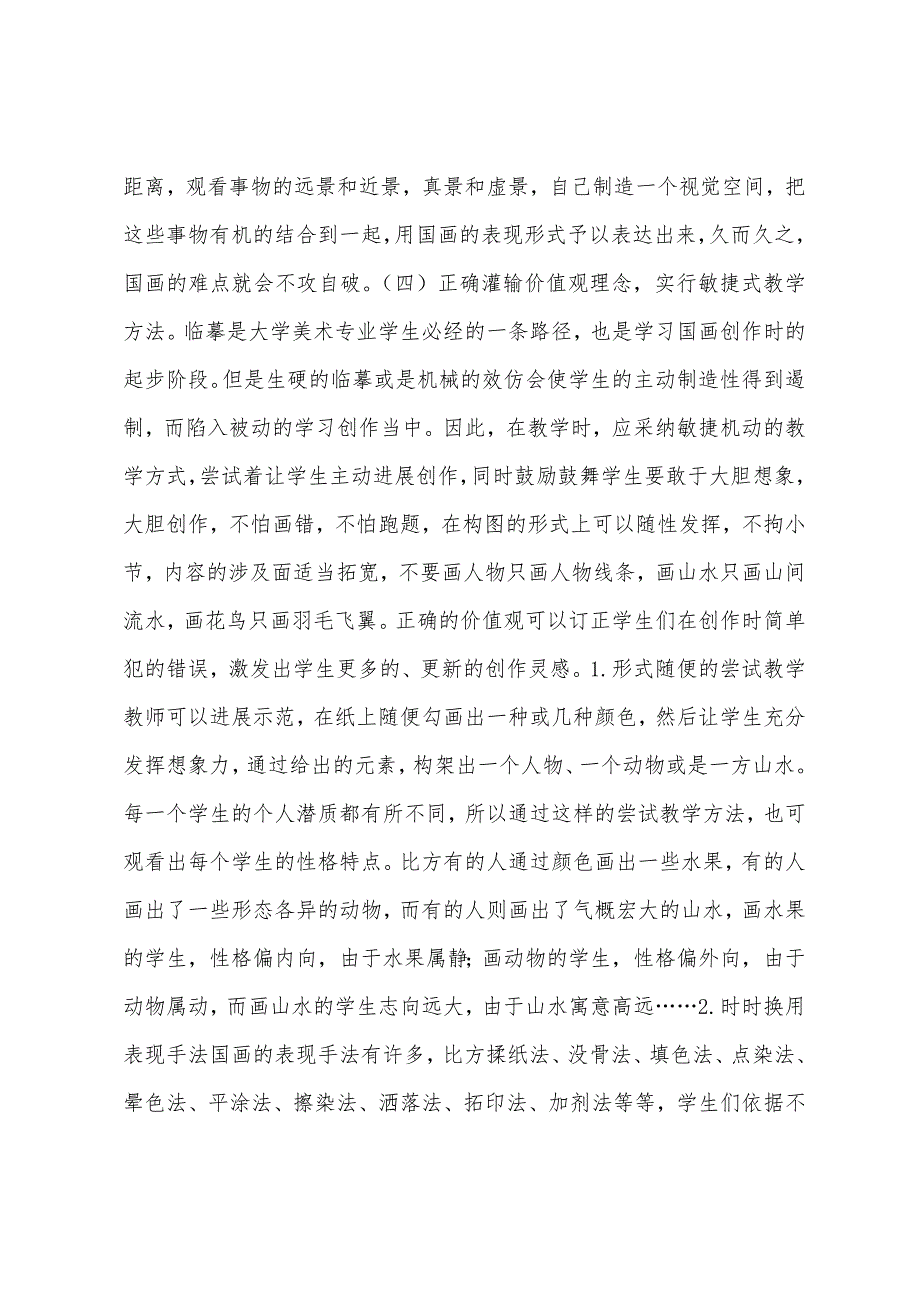 距离，观看事物的远景和近景，真景和虚景，自己制造一个视觉空间，把
这些事物有机的结合到一起，用国画的表现形式予以表达出来，久而久之，
国画的难点就会不攻自破。（四）正确灌输价值观理念，实行敏捷式教学
方法。临摹是大学美术专业学生必经的一条路径，也是学习国画创作时的
起步阶段。但是生硬的临摹或是机械的效仿会使学生的主动制造性得到遏
制，而陷入被动的学习创作当中。因此，在教学时，应采纳敏捷机动的教
学方式，尝试着让学生主动进展创作，同时鼓励鼓舞学生要敢于大胆想象，
大胆创作，不怕画错，不怕跑题，在构图的形式上可以随性发挥，不拘小
节，内容的涉及面适当拓宽，不要画人物只画人物线条，画山水只画山间
流水，画花鸟只画羽毛飞翼。正确的价值观可以订正学生们在创作时简单
犯的错误，激发出学生更多的、更新的创作灵感。1.形式随便的尝试教学
教师可以进展示范，在纸上随便勾画出一种或几种颜色，然后让学生充分
发挥想象力，通过给出的元素，构架出一个人物、一个动物或是一方山水。
每一个学生的个人潜质都有所不同，所以通过这样的尝试教学方法，也可
观看出每个学生的性格特点。比方有的人通过颜色画出一些水果，有的人
画出了一些形态各异的动物，而有的人则画出了气概宏大的山水，画水果
的学生，性格偏内向，由于水果属静；画动物的学生，性格偏外向，由于
动物属动，而画山水的学生志向远大，由于山水寓意高远……2.时时换用
表现手法国画的表现手法有许多，比方揉纸法、没骨法、填色法、点染法、
晕色法、平涂法、擦染法、洒落法、拓印法、加剂法等等，学生们依据不